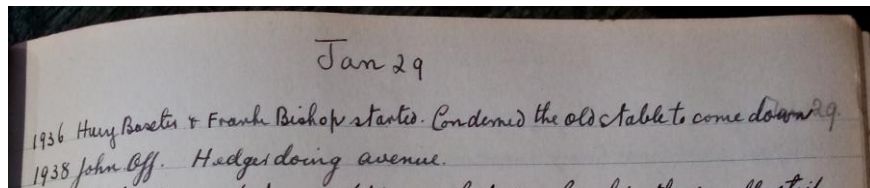 Jan 29
1936 Harry Baxter & Frank Bishop started. Condemned the old stable to come down
1938 John Off. Hedges doing avenue.